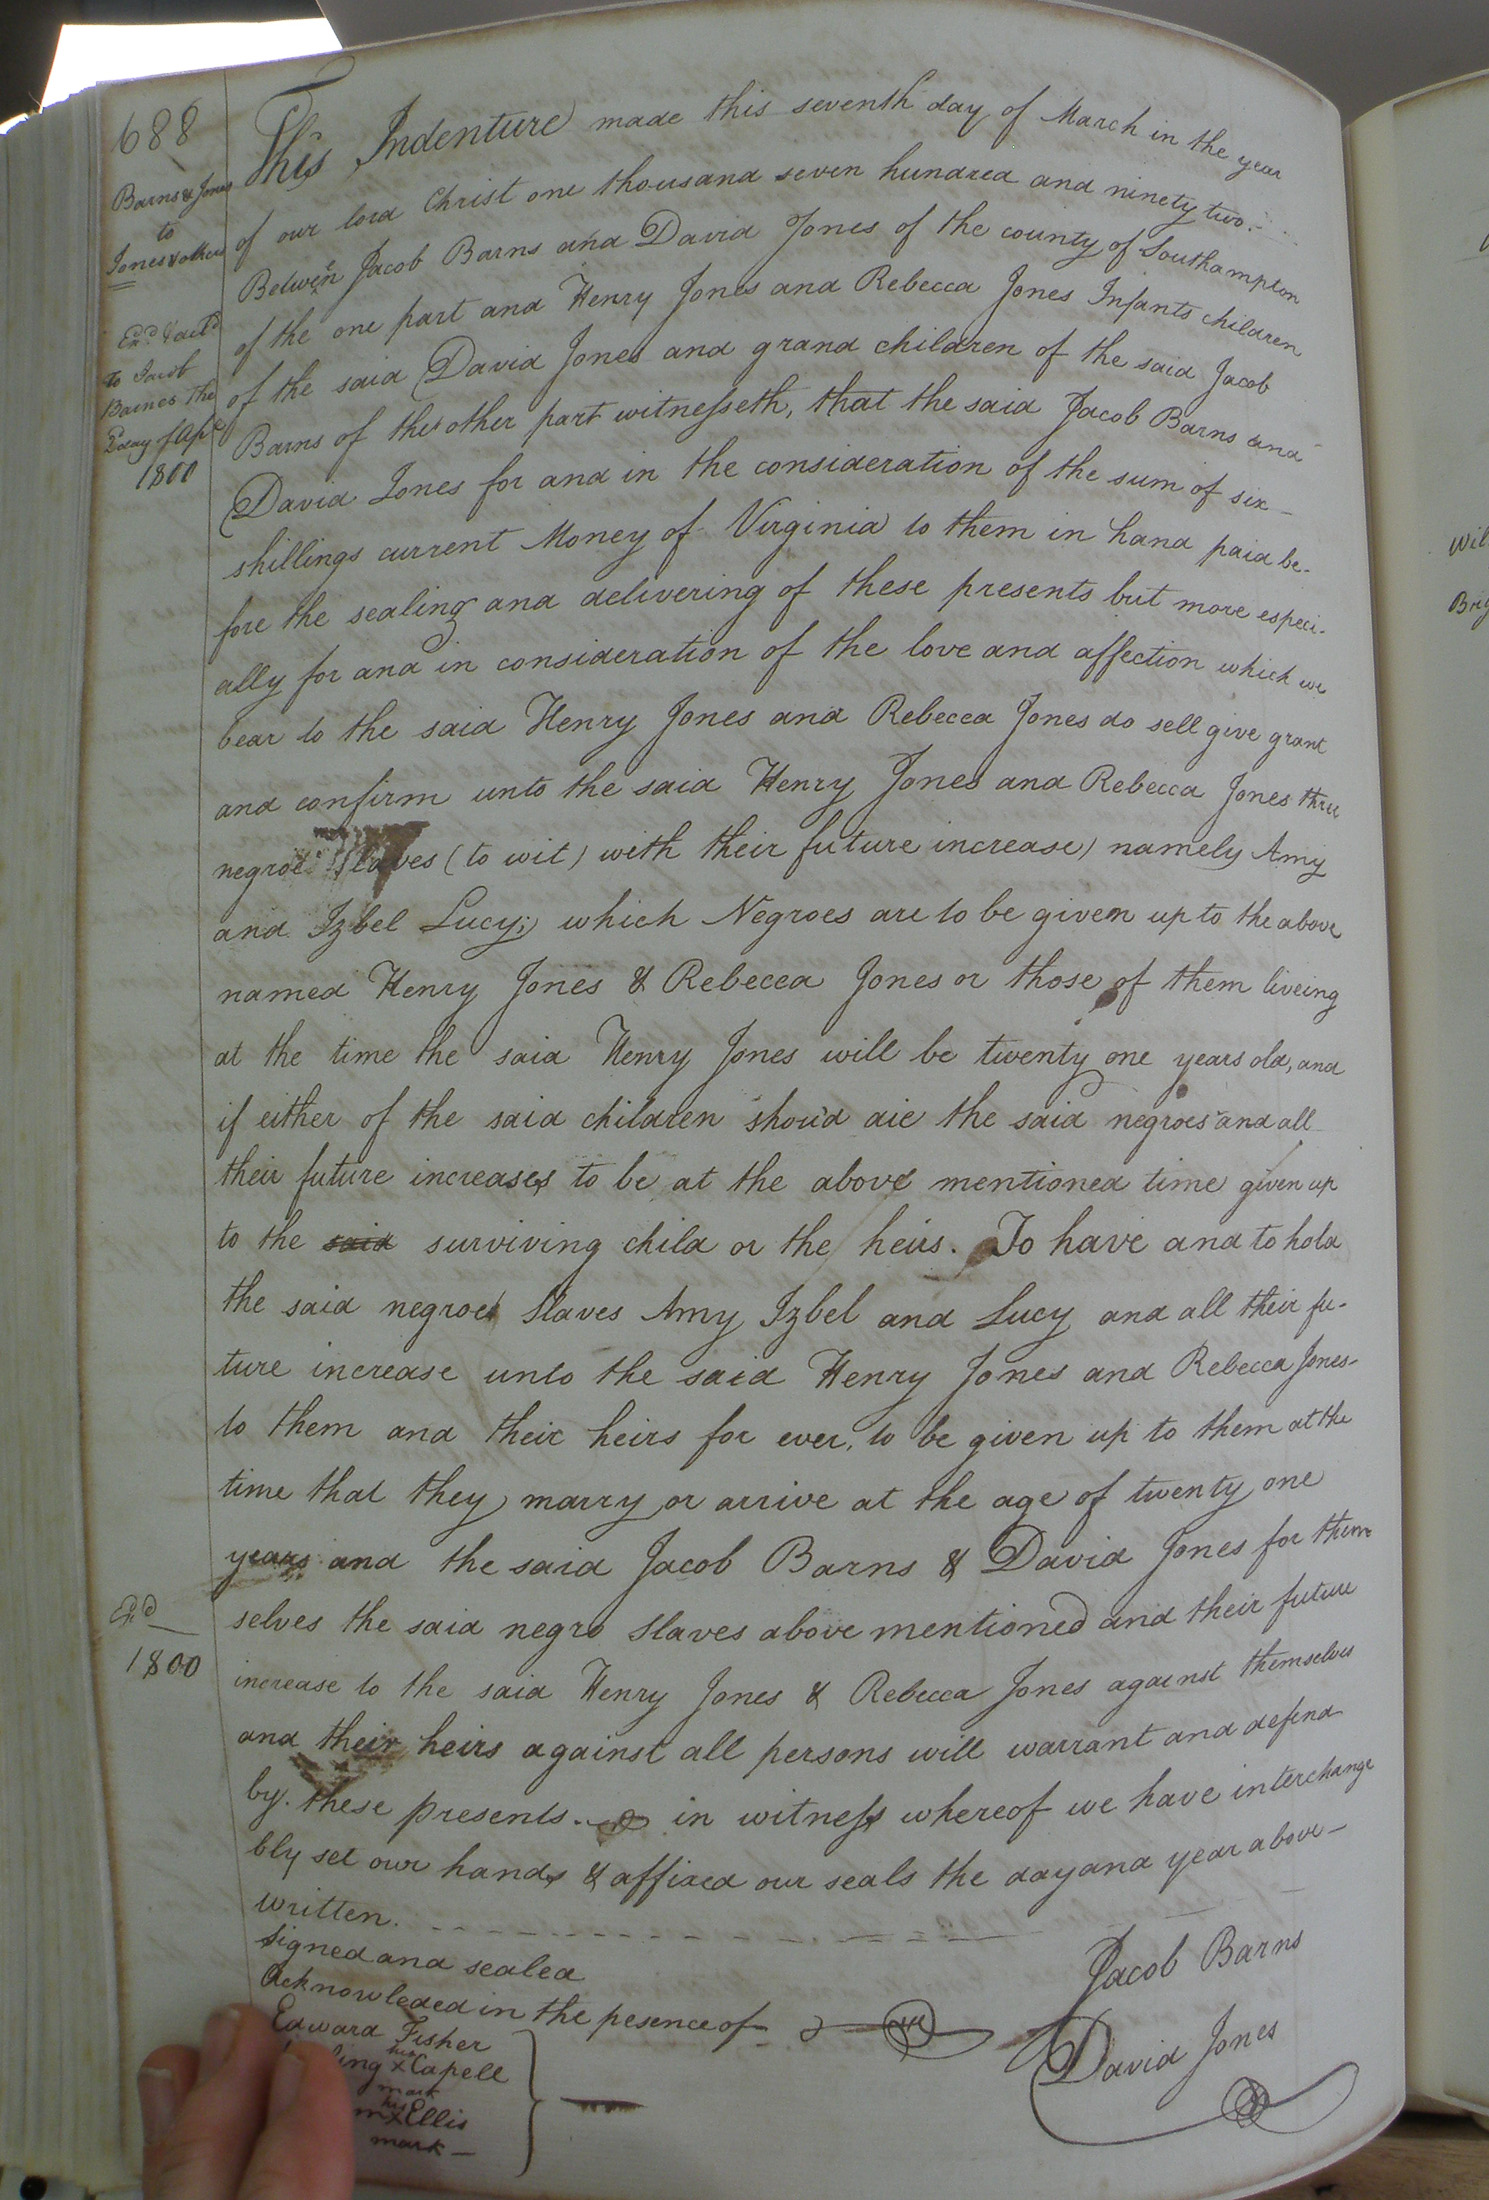 688
Barns & Jones
to
Jones & others
Exd. & deld
to Jacob
Barnes the
day of Apl
1800
This Indenture made this seventh day of March in the year
of our lord Christ one thousand seven hundred and ninety two.
Between Jacob Barns and David Jones of the county of Southampton
of the one part and Henry Jones and Rebecca Jones Infants children
of the said David Jones and grand children of the said Jacob
Barns of the other part witnesseth, that the said Jacob Barns and
David Jones for and in the consideration of the sum of six
shillings current Money of Virginia to them in hand paid be-
fore the sealing and delivering of these presents but more especi-
ally for and in consideration of the love and affection which we
bear to the said Henry Jones and Rebecca Jones do sell give grant
and confirm unto the said Henry Jones and Rebecca Jones three
negroe slaves (to wit) with their future increase) namely Amy
and Izbel Lucy; which Negroes are to be given up to the above
named Henry Jones & Rebecca Jones or those of them liveing
at the time the said Henry Jones will be twenty one years old, and
if either of the said children shou'd die the said negroes and all
their future increases to be at the above mentioned time given up
to the said surviving child or the heirs. To have and to hold
the said negroe slaves Amy Izbel and Lucy and all their fu-
ture increase unto the said Henry Jones and Rebecca Jones
to them and their heirs for ever, to be given up to them at the
time that they marry or arrive at the age of twenty one
years and the said Jacob Barns & David Jones for them
selves the said negro slaves above mentioned and their future
increase to the said Henry Jones & Rebecca Jones against themselves
and their heirs against all persons will warrant and defend
by these presents. in witness whereof we have interchange
bly set our hands & affixed our seals the day and year above
written.
Exd
1800
signed and sealed
Acknowledged in the pesence of
Jacob Barns
David Jones
Edward Fisher
his
ling x Capell
mark
his
m x Ellis
mark